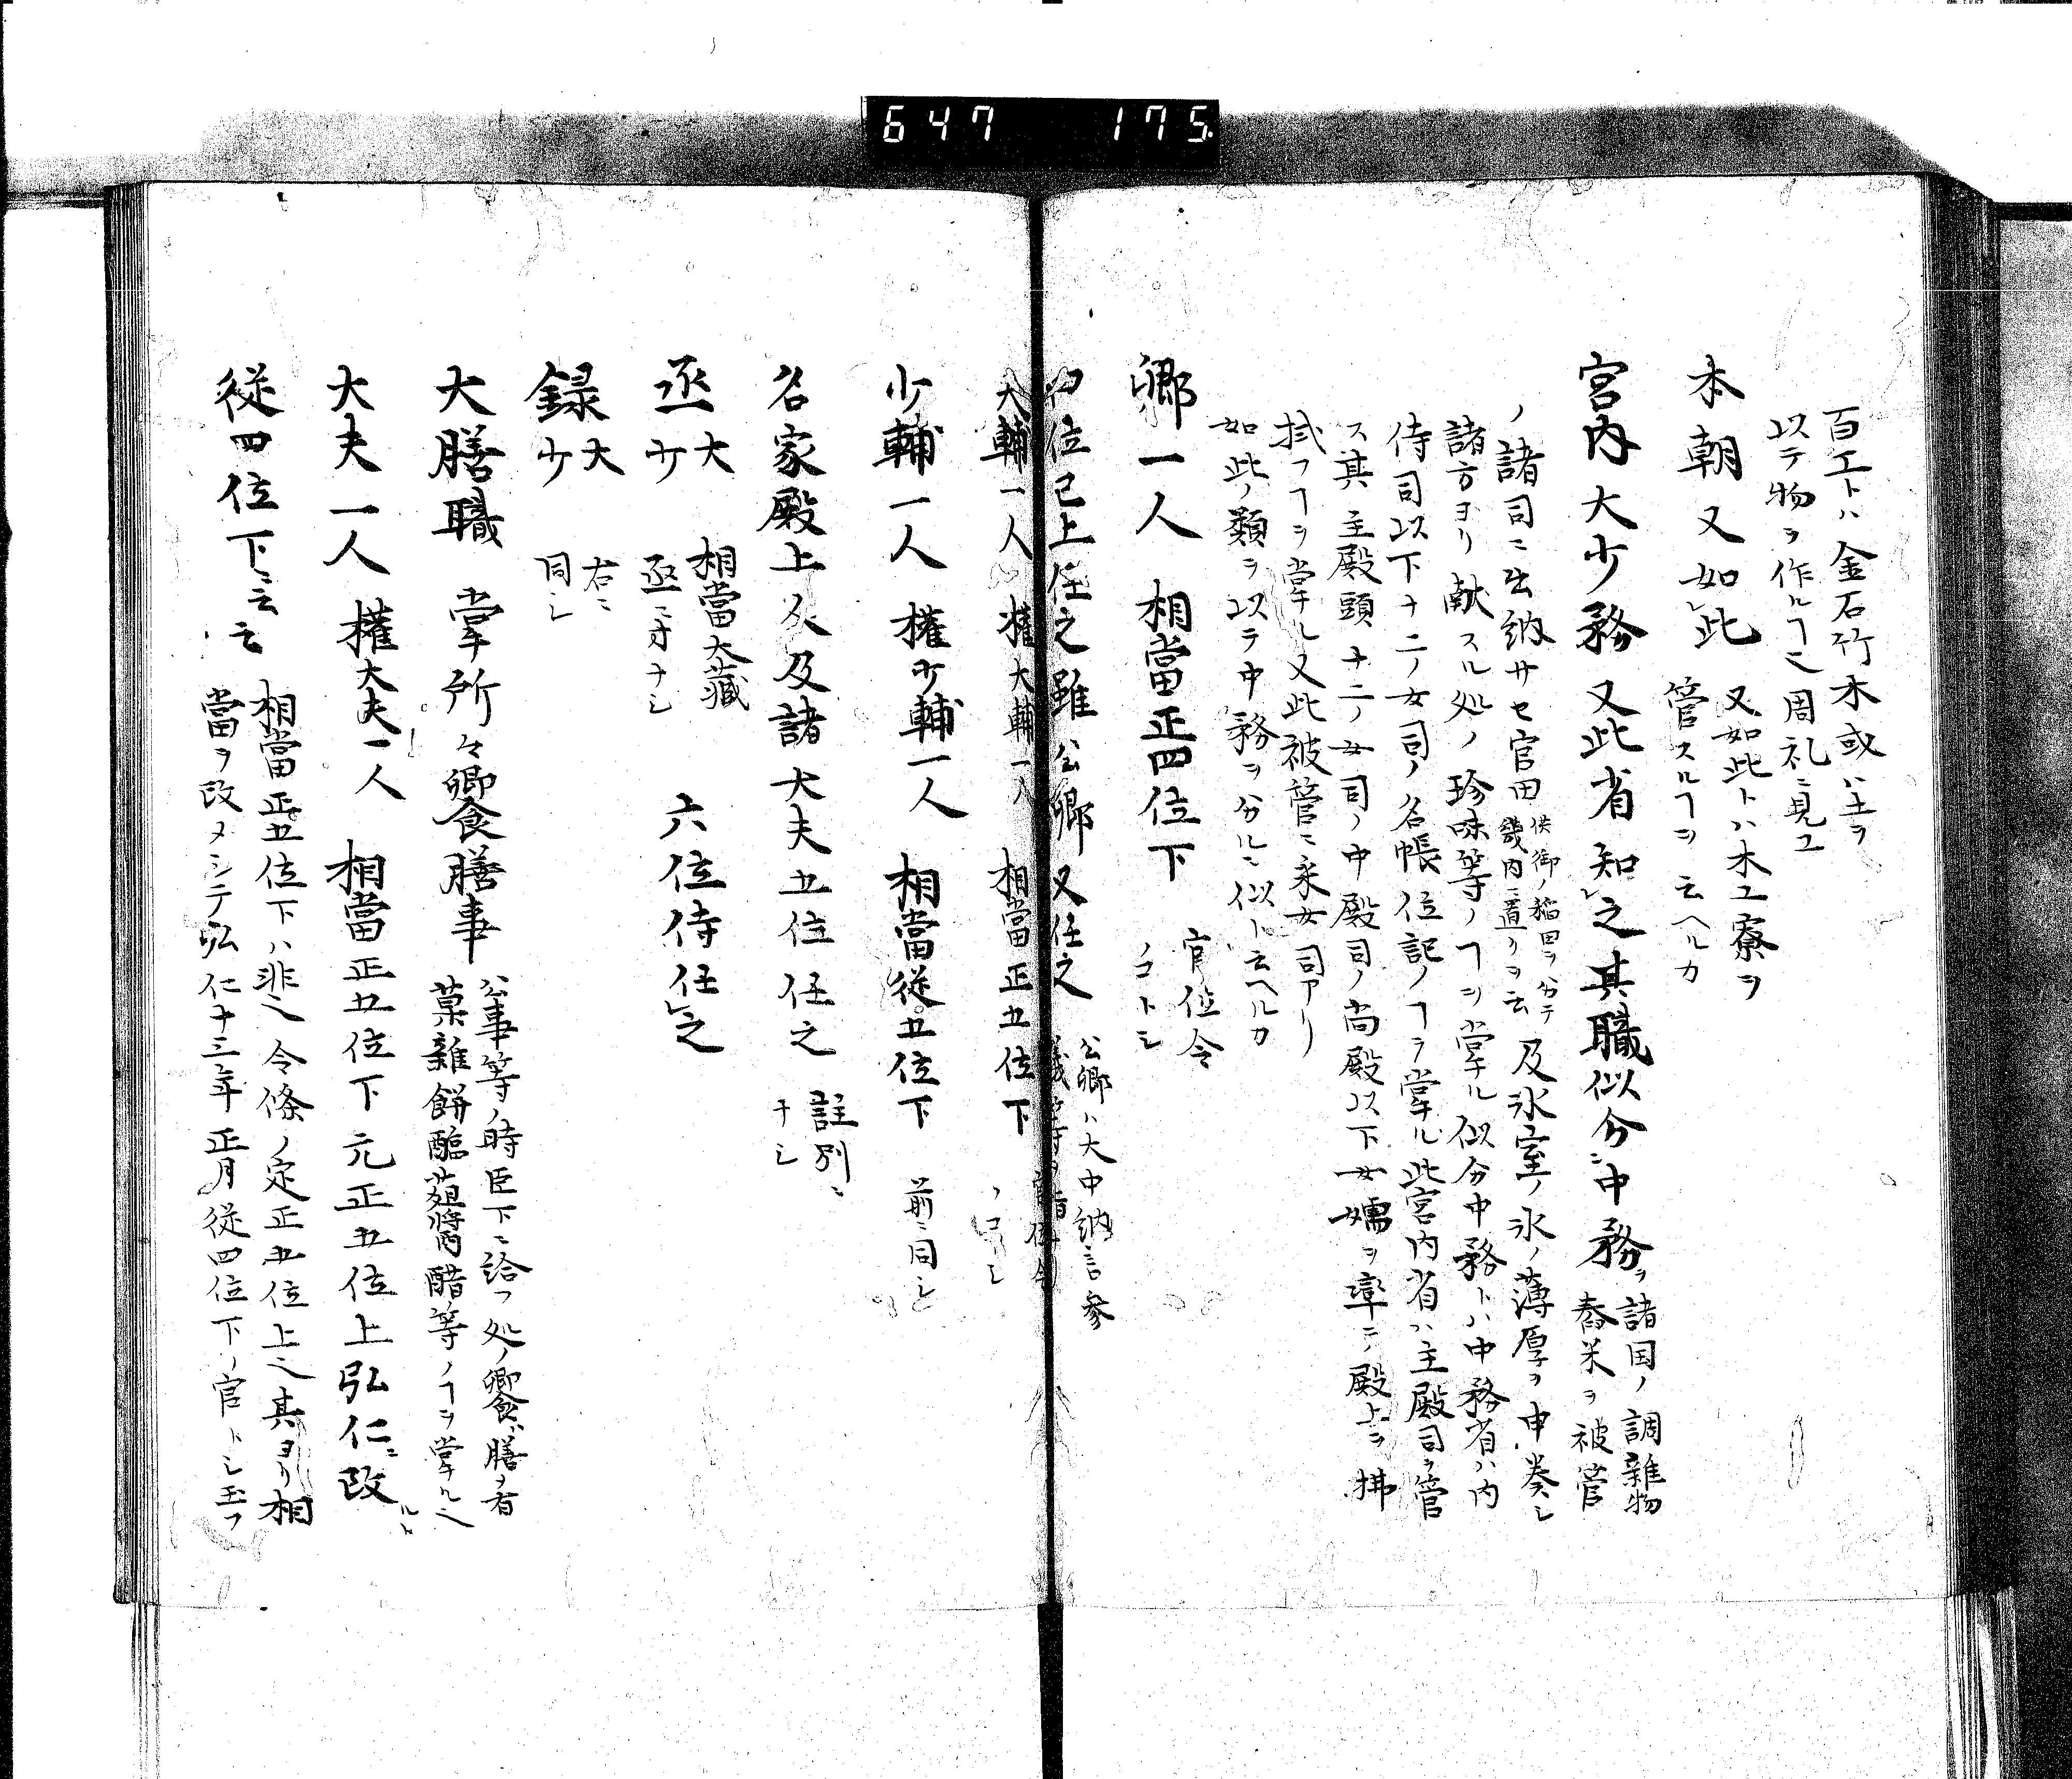 647 175
百工トハ金石竹木或ハ土ヲ
以テ物ヲ作ルヿ也周礼ニ見ユ
本朝又如此
又如此トハ木工寮ヲ
管スルヿヲ云ヘルカ
宮内大少務又此省知之其職似分ニ中務
ヲ諸国ノ調雑物
舂米ヲ被管
ノ諸司ニ出納サセ官田
供御ノ稲田ヲ分テ
畿内ニ置リヲ云
及氷室ノ氷ノ薄厚ヲ申奏シ
諸方ヨリ献スル処ノ珍味等ノヿヲ掌ル似分中務トハ中務省ハ内
侍司以下十二ノ女司ノ名帳位記ノヿヲ掌ル此宮内省ハ主殿司ヲ管
ス其主殿頭十二ノ女司ノ中殿司ノ尚殿以下女嬬ヲ率テ殿上ヲ拂
拭フヿヲ掌ル又此被管ニ采女司アリ
如此ノ類ヲ以テ中務ヲ分ルニ似ト云ヘルカ
卿一人 相當正四位下
官位令
ノコトシ
四位已上任之雖公卿又任之
公卿ハ大中納言参
議等ヲ指
大輔一人 権大輔一人 相當正五位下
官位令
ノコトシ
少輔一人 権少輔一人 相當従五位下 前ニ同シ
名家殿上人及諸大夫五位任之
註別ニ
ナシ
丞 大
少
相當大蔵
丞ニ才ナシ
六位侍任之
録 大
少
右ニ
同シ
大膳職 掌所々卿食膳事
公事等ノ時臣下ニ給フ処ノ饗食膳ヲ看
菓雑餅醢葅醤醋等ノヿヲ掌ル也
大夫一人 権大夫一人 相當正五位下元正五位上弘仁ニ改ルト
従四位下ニ云云
相當正五位下ハ非也令條ノ定正五位上也其ヨリ相
當ヲ改メシテ弘仁十三年正月従四位下ノ官トシ玉フ